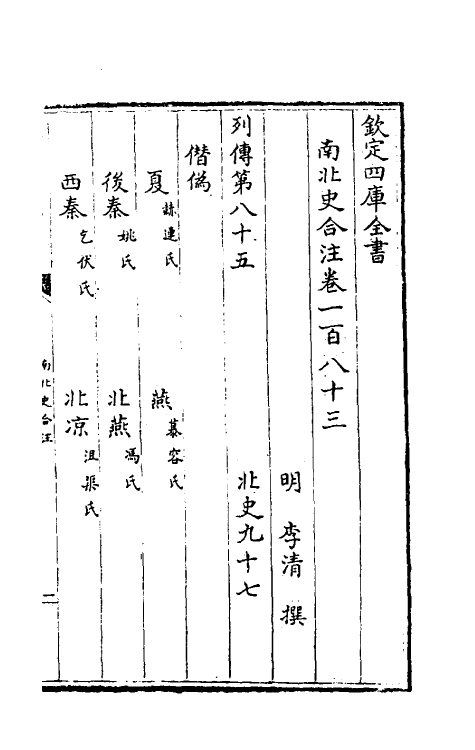 欽定四庫全書
南北史合注卷一百八十三
明 李清 撰
列傳第八十五 北史九十七
僭偽
夏 赫連氏 燕 慕容氏
後秦 姚氏 北燕 馮氏
西秦 乞伏氏 北凉 沮渠氏
南北史合注